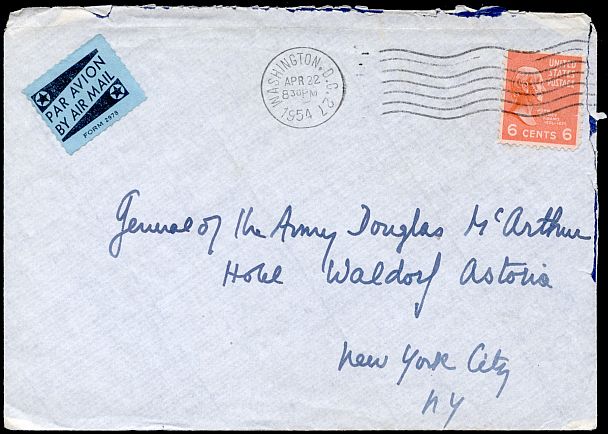 PAR AVION
BY AIR MAIL
FORM 2978
WASHINGTON, D.C. 2
APR 22
830PM
1954
UNITED
STATES
POSTAGE
6 CENTS 6
General of the Army Douglas McArthur
Hotel Waldorf Astoria
New York City
NY